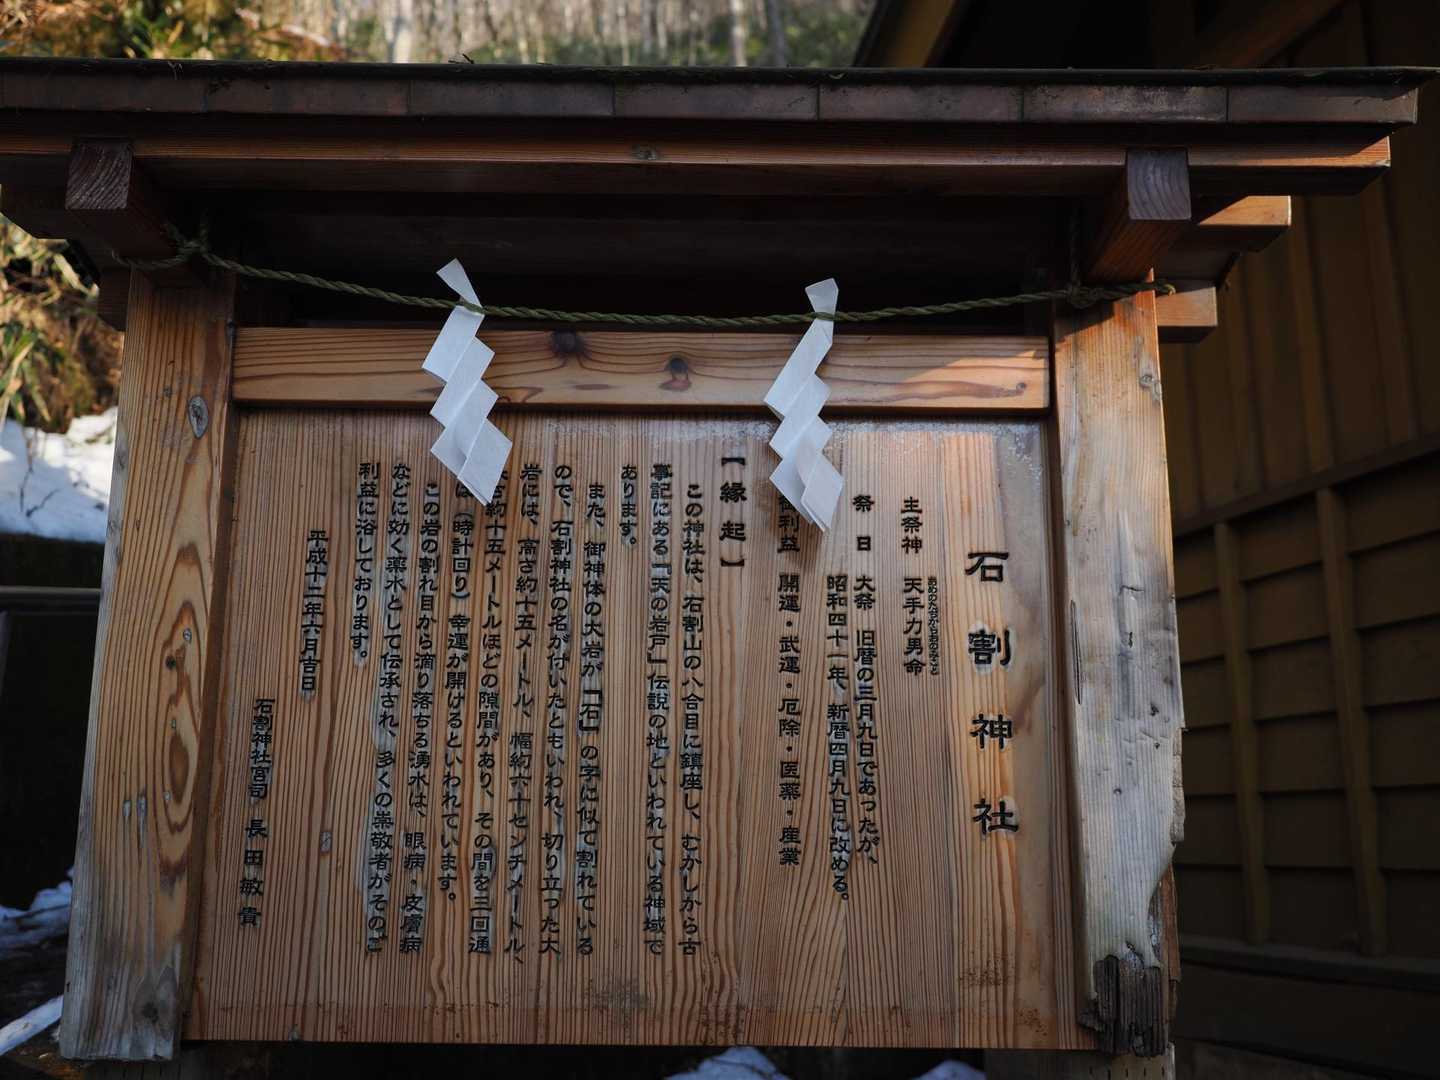 石割神社
主祭神　天手力男命
あめのたぢからおのみこと
祭　日　大祭　旧暦の三月九日であったが、
昭和四十一年、新暦四月九日に改める。
御利益　開運・武運・厄除・医薬・産業
【縁　起】
この神社は、石割山の八合目に鎮座し、むかしから古
事記にある「天の岩戸」伝説の地といわれている神域で
あります。
また、御神体の大岩が「石」の字に似て割れている
ので、石割神社の名が付いたともいわれ、切り立った大
岩には、高さ約十五メートル、幅約六十センチメートル、
約十五メートルほどの隙間があり、その間を三回通
（時計回り）幸運が開けるといわれています。
この岩の割れ目から滴り落ちる湧水は、眼病・皮膚病
などに効く薬水として伝承され、多くの崇敬者がそのご
利益に浴しております。
平成十二年六月吉日
石割神社宮司　長田敏貴